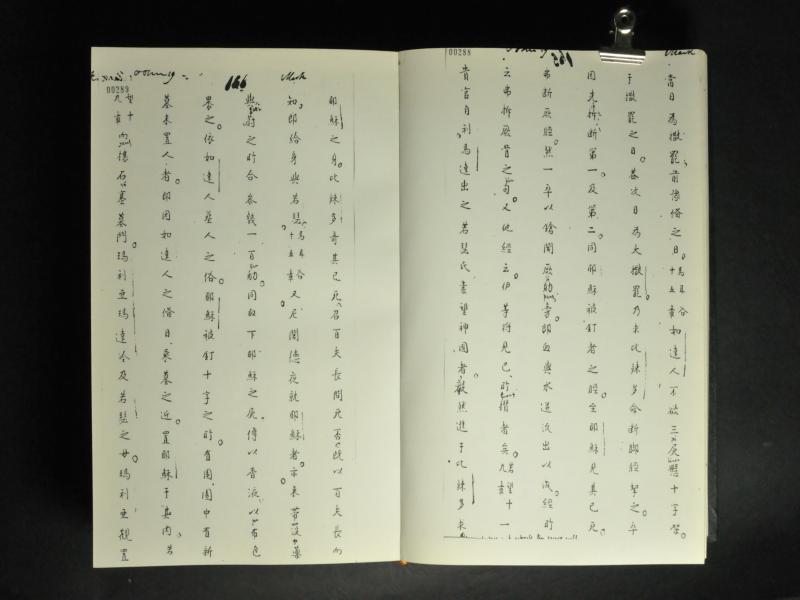 Mark
00288
當日為撒罷前像俗之日。馬耳谷十五章如達人不欲三尸懸十字架
于撒罷之日。葢次日為大撒罷乃求比辣多令斷脚脛挈之。卒
因來拆斷第一及第二同耶穌被釘者之脛至耶穌見其已死。
弗斷厥脛然一卒以鎗開厥肋旁。即血與水迸流出以成經所
云弗拆厥骨之句。又他經云伊等将見已所攢者矣。若望十九章一
貴官自利馬達出之若瑟氏素望神國者毅然進于比辣多求
Mark
166
00289
耶穌之身。比辣多奇其已死。召百夫長問死否。既以百夫長而
知。即給身與若瑟。馬耳谷十五章又尼閣德夜就耶穌者。亦來帶沒藥
與蔚之所合叅饒一百觔。同取下耶穌之尸。傅以香液。以布包
畏之。依如達人塟人之俗。耶穌被釘十字之所有園。園中有新
墓未置人者。即因如達人之俗日。乘墓之近置耶穌于其内。若
望十九章而樓石塞墓門。瑪利亞瑪達冷及若瑟之母瑪利亞觀置